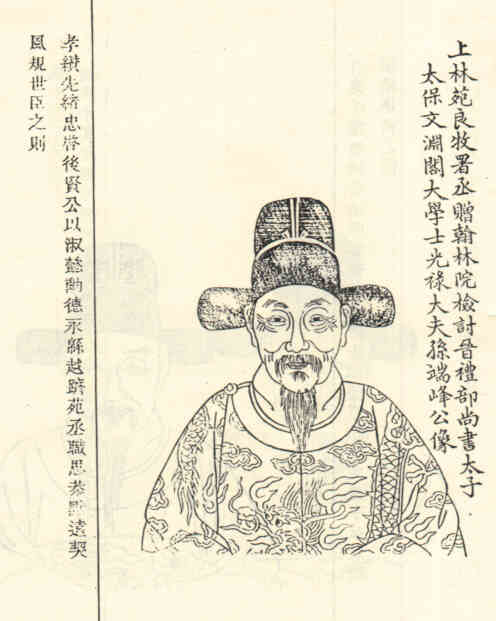 上林苑良牧署丞贈翰林院檢討晉禮部尚書太子
太保文淵閣大學士光祿大夫孫端峰公像
孝纘先緒忠啓後賢公以淑懿劭德永緜越躋苑丞職思恭遠契
風規世臣之則